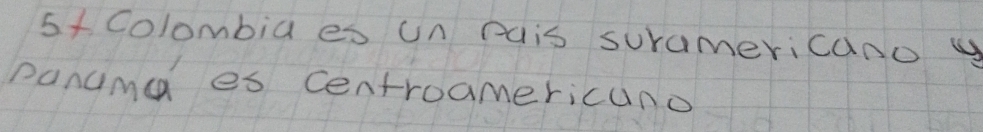 5+ Colombia es un pais suramericano y
panamá es centroamericano